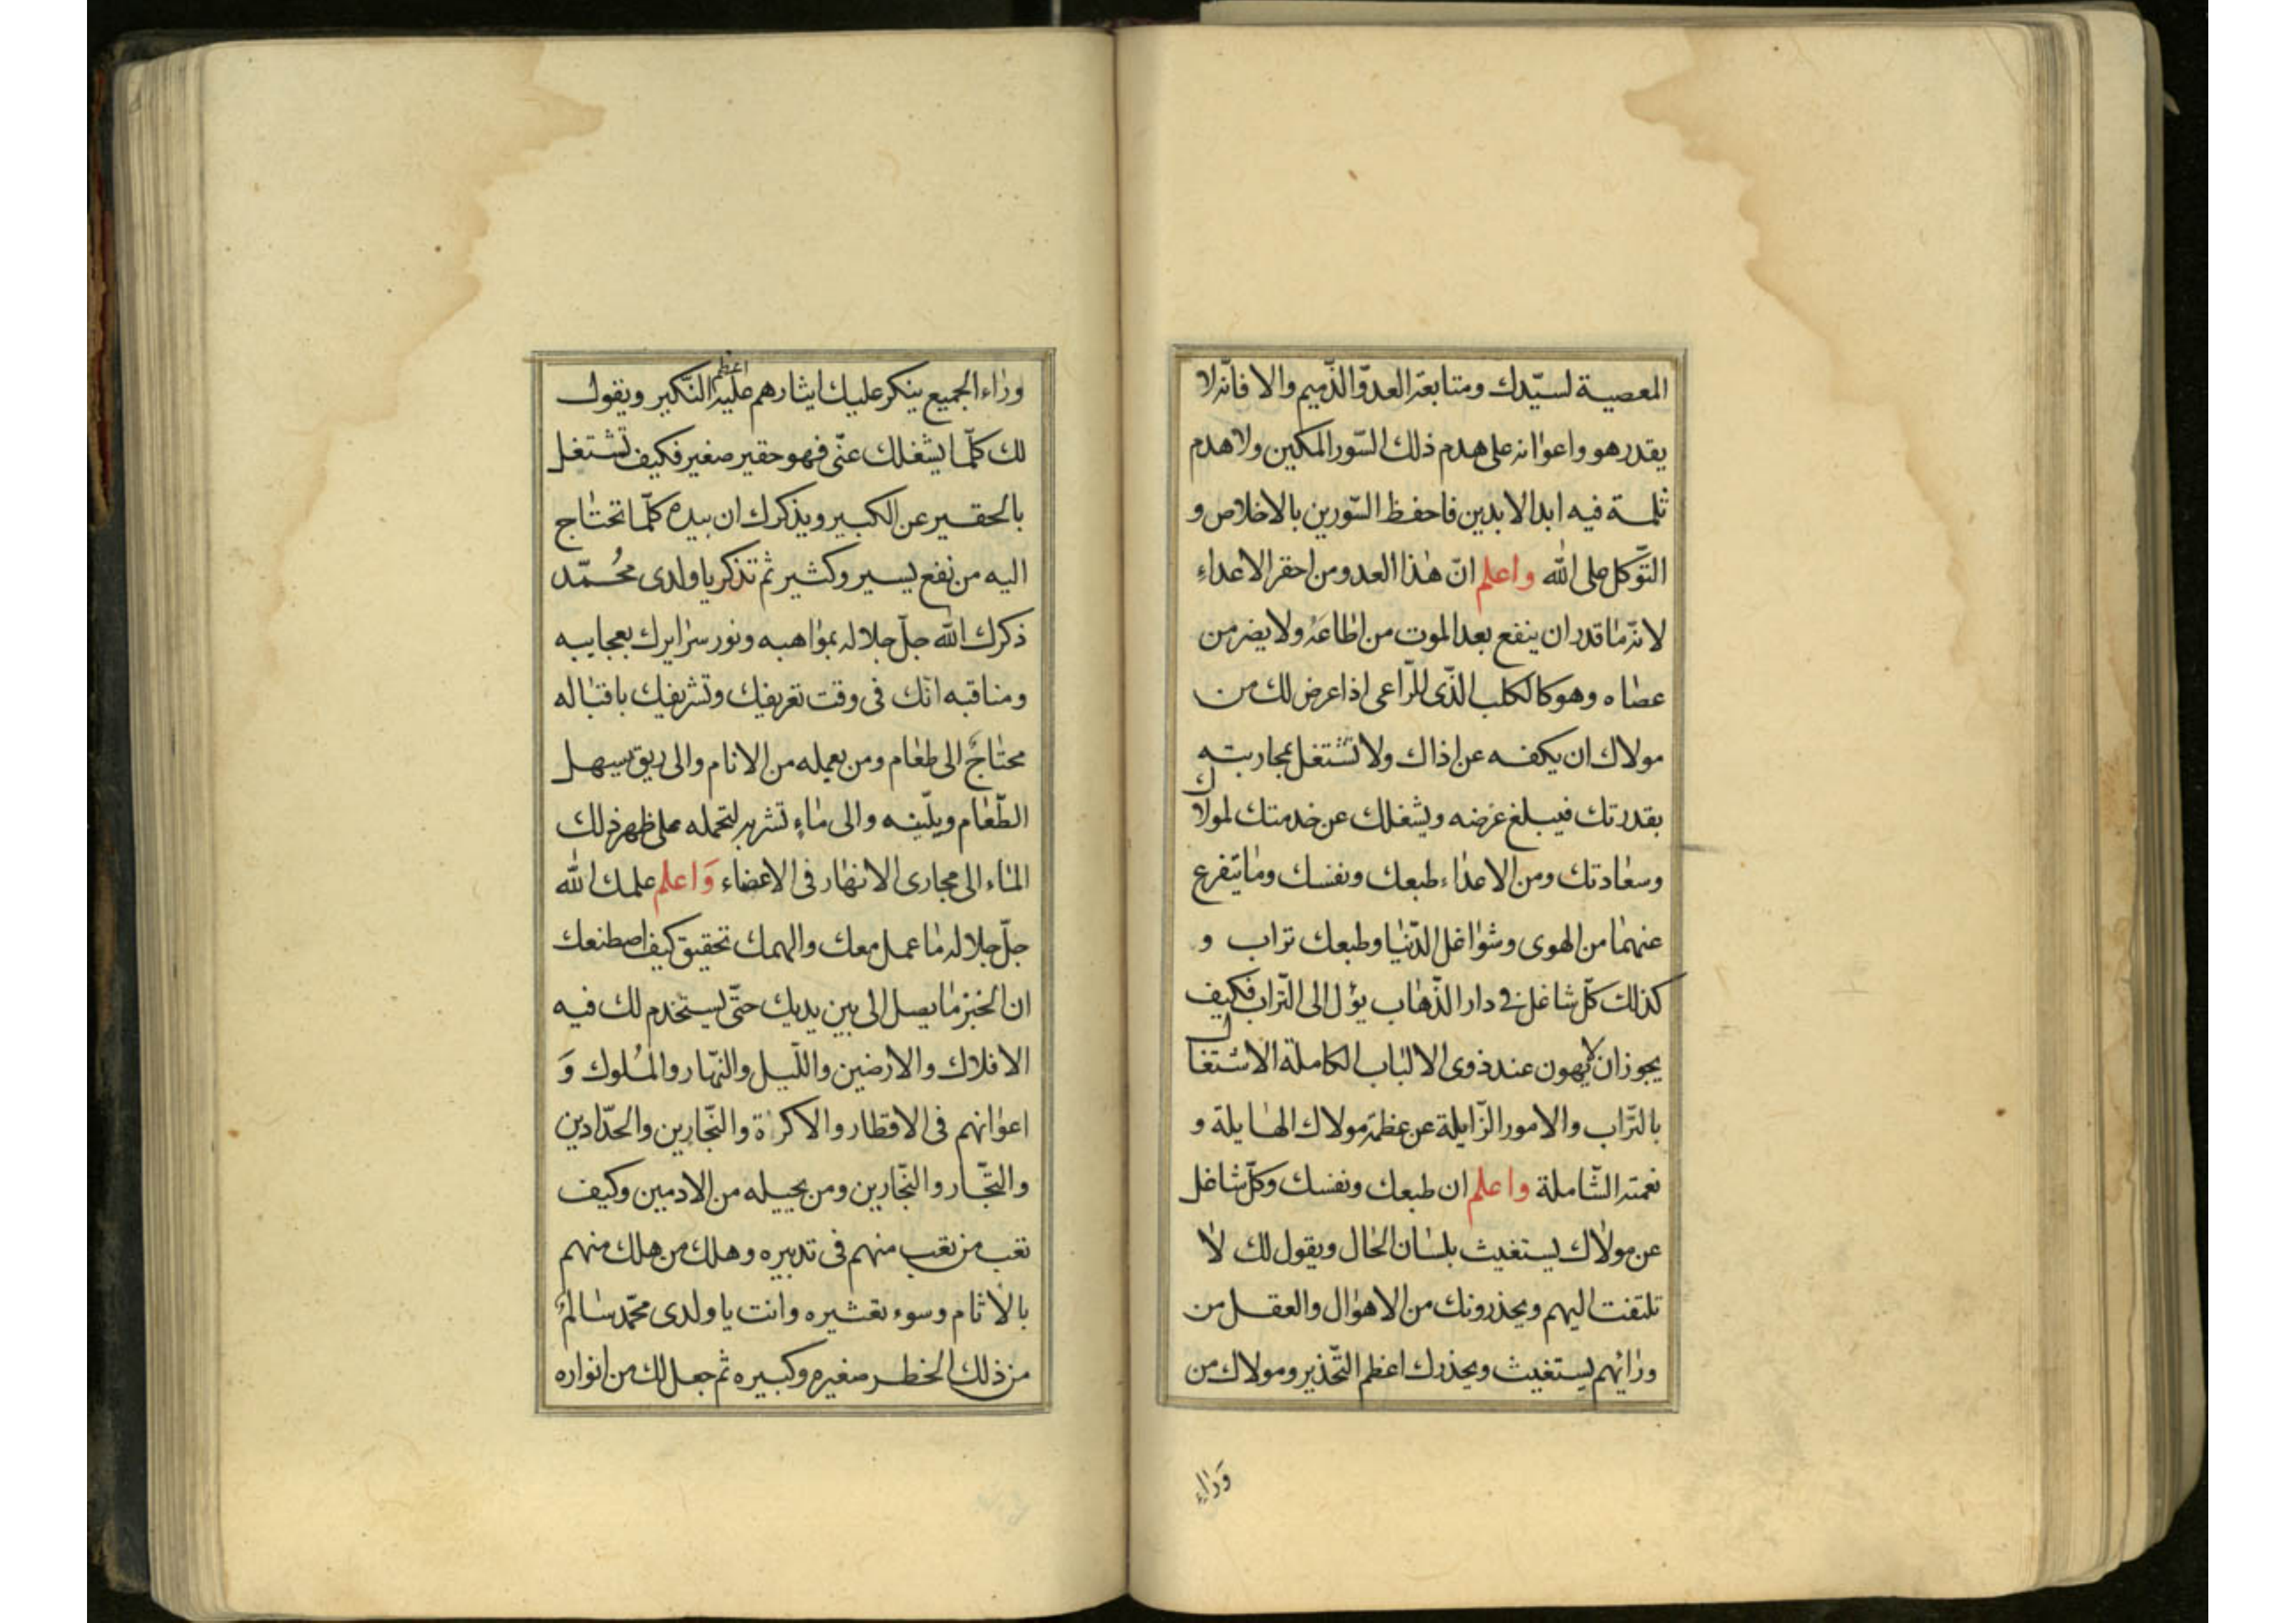 المعصية لسيّدك ومتابعة العدوّ الذّميم والا فانّه لا
يقدر هو واعوانه على هدم ذلك السّور المكين ولا هدم
ثلمة فيه ابد الابدين فاحفظ السّورين بالاخلاص و
التّوكل على الله واعلم انّ هذا العدو من احقر الاعداء
لانّه ما قدر ان ينفع بعد الموت من اطاعه ولا يضر من
عصاه وهو كالكلب الذّى للرّاعى اذا عرض لك من
مولاك ان يكفه عن اذاك ولا تشتغل بمحاربته
بقدرتك فيبلغ غرضه ويشغلك عن خدمتك لمولاك
وسعادتك ومن الاعداء طبعك ونفسك وما يتفرع
عنهما من الهوى وشواغل الدّنيا وطبعك تراب و
كذلك كلّ شاغل فى دار الذّهاب يؤل الى التّراب فكيف
يجوز ان لا يهون عند ذوى الالباب الكاملة الاشتغال
بالتّراب والامور الزّايلة عن عظمة مولاك الهايلة و
نعمته الشّاملة واعلم ان طبعك ونفسك وكلّ شاغل
عن مولاك يستغيث بلسان الحال ويقول لك لا
تلتفت اليهم ويحذرونك من الاهوال والعقل من
ورائهم يستغيث ويحذرك اعظم التّحذير ومولاك من
وراء
وراء الجميع ينكر عليك ايثارهم عليه اعظم النّكير ويقول
لك كلّما يشغلك عنّى فهو حقير صغير فكيف تشتغل
بالحقير عن الكبير ويذكرك ان بيده كلّما تحتاج
اليه من نفع يسير وكثير ثم تذكر يا ولدى محُمّد
ذكرك الله جلّ جلاله بمواهبه ونور سرايرك بعجايبه
ومناقبه انّك فى وقت تعريفك وتشريفك باقباله
محتاجٌ الى طعام ومن يعمله من الانام والى ريق يسهل
الطّعام ويلّينه والى ماءٍ تشربه لتحمله على ظهر ذلك
الماء الى مجارى الانهار فى الاعضاء وَاعلم علمك الله
جلّ جلاله ما عمل معك والهمك تحقيق كيف اصطنعك
ان الخبز ما يصل الى بين يديك حتّى يستخدم لك فيه
الافلاك والارضين واللّيل والنّهار والملُوك وَ
اعوانهم فى الاقطار والاكراة والنّجارين والحدّادين
والتّجّار والنّجّارين ومن يحييله من الادميين وكيف
تعب من تعب منهم فى تدبيره وهلك من هلك منهم
بالاثام وسوء تعثيره وانت يا ولدى محمّد سالمٌ
من ذلك الخطر صغيره وكبيره ثم جعل لك من انواره